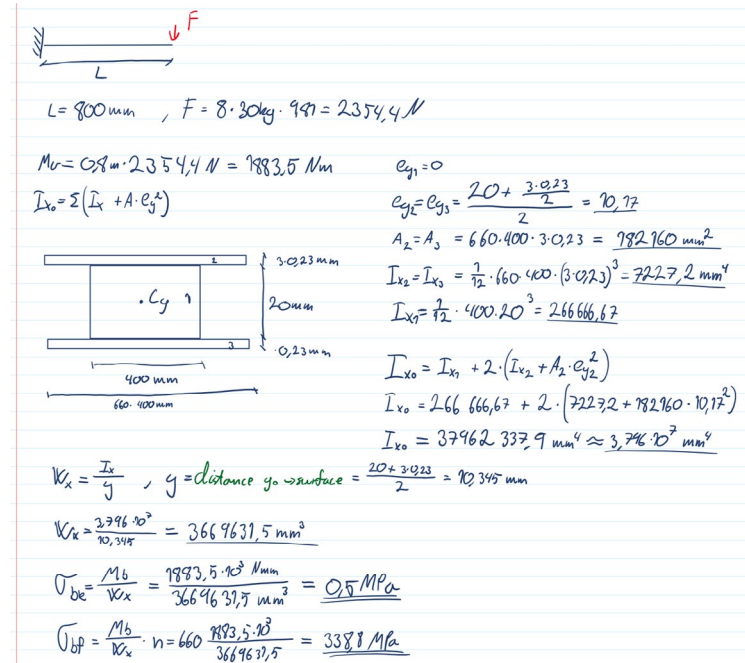 F
L
L = 800 mm , F = 8·30kg·9,81 = 2354,4 N
Mv = 0,8m·2354,4 N = 1883,5 Nm
Ix₀ = Σ(Ix + A·ey²)
2
3·0,23 mm
·Cy 1
20mm
3
·0,23mm
400 mm
660·400mm
ey₁ = 0
ey₂ = ey₃ = (20 + (3·0,23)/2)/2 = 10,17
A₂ = A₃ = 660·400·3·0,23 = 182160 mm²
Ix₂ = Ix₃ = 1/12·660·400·(3·0,23)³ = 7227,2 mm⁴
Ix₁ = 1/12·400·20³ = 266666,67
Ix₀ = Ix₁ + 2·(Ix₂ + A₂·ey₂²)
Ix₀ = 266 666,67 + 2·(7227,2 + 182160·10,17²)
Ix₀ = 37962 337,9 mm⁴ ≈ 3,796·10⁷ mm⁴
Wx = Ix/y , y = distance y₀ → surface = (20 + 3·0,23)/2 = 10,345 mm
Wx = 3,796·10⁷/10,345 = 3669631,5 mm³
σbe = Mb/Wx = 1883,5·10³ Nmm/3669631,5 mm³ = 0,5 MPa
σbf = Mb/Wx · n = 660 1883,5·10³/3669631,5 = 338,8 MPa